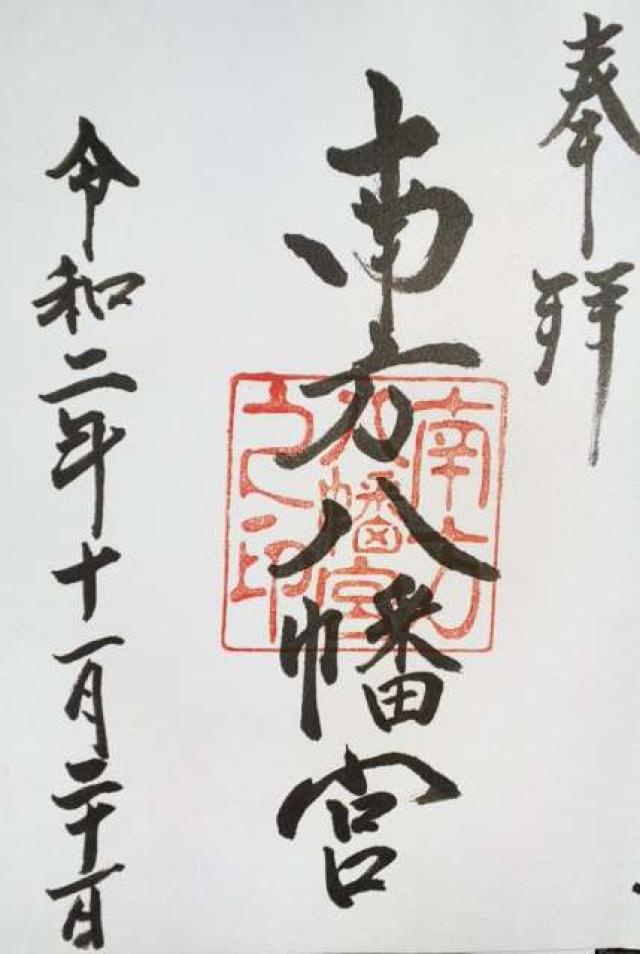 奉拝
南方八幡宮
南方
八幡宮
之印
令和二年十一月二十一日